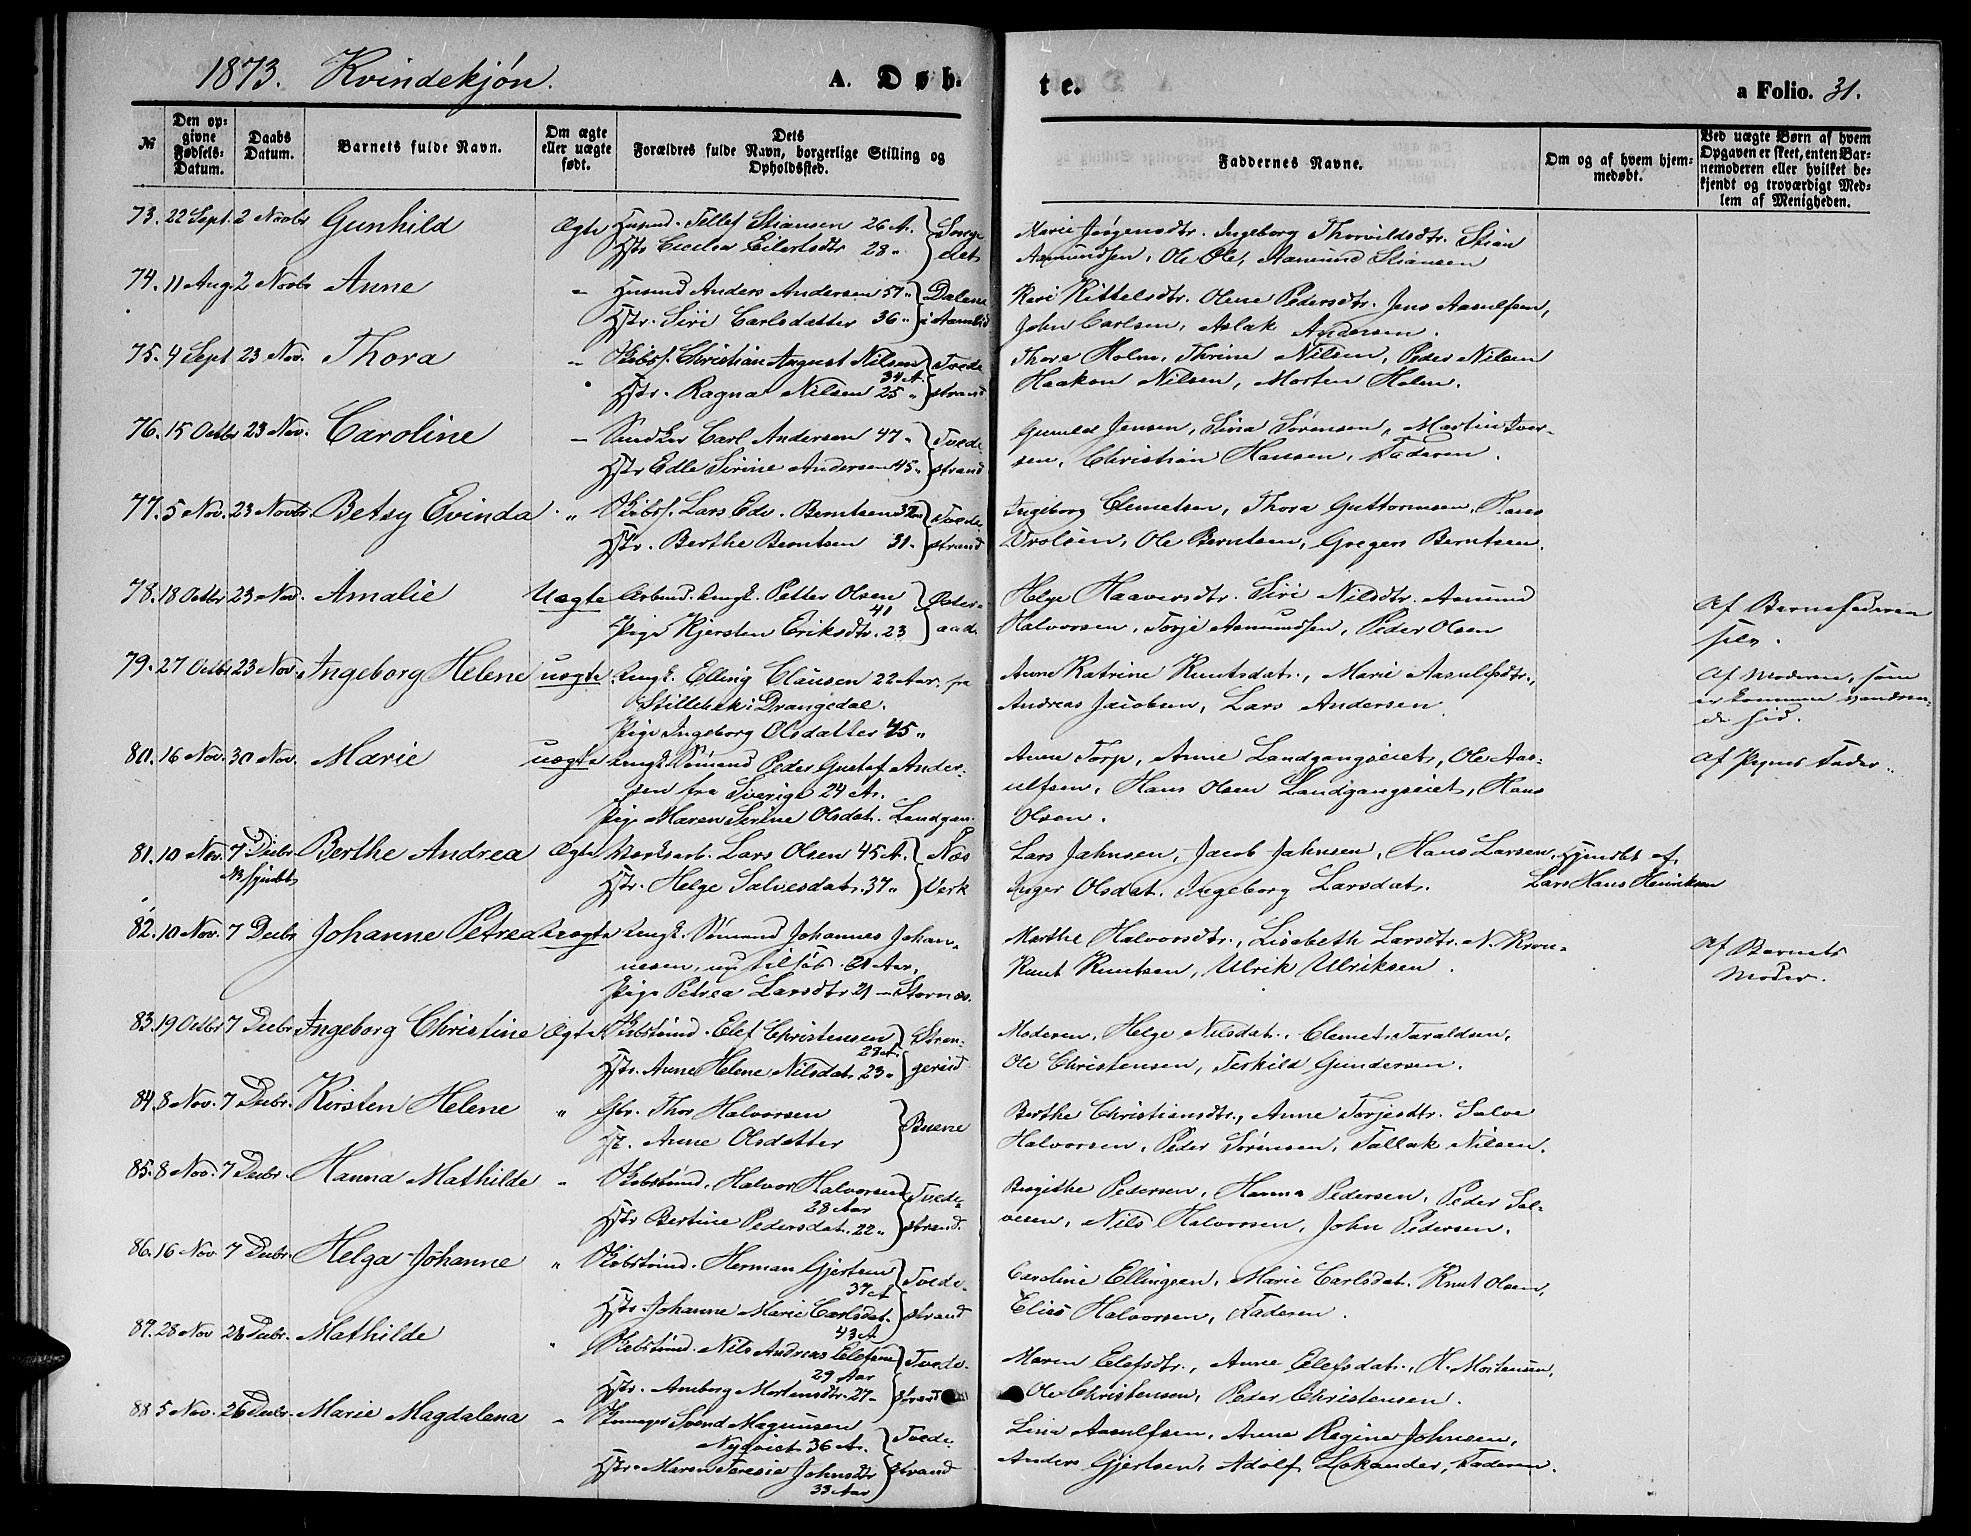 1873. Kvindekjøn.
A. Døb-
te.
a Folio. 31.
№
Den op-
givne
Fødsels-
Datum.
Daabs
Datum.
Barnets fulde Navn.
Om ægte
eller uægte
født.
Dets
Forældres fulde Navn, borgerlige Stilling og
Opholdssted.
Faddernes Navne.
Om og af hvem hjem-
medøbt.
Ved uægte Børn af hvem
Opgaven er skeet, enten Bar-
nemoderen eller hvilket be-
kjendt og troværdigt Med-
lem af Menigheden.
73. 22 Sept. 2 Novbr Gunhild Ægte Husmd. Tellef Stiansen 26 A. Songe
Hstr Cecilia Eilertsdtr 28 " elet
Marie Jørgensdtr. Ingeborg Thorvildsdtr. Stian
Asmundsen, Ole Ols, Aamund Stiansen
74. 11 Aug. 2 Novbr Anne - Husmd Anders Andersen 57 " Dalene
Hstr. Siri Carlsdatter 36 " i Aamlid
Kari Kittelsdtr. Olene Pedersdtr. Jens Aasulfsen,
John Carlsen, Aslak Andersen.
75. 4 Sept 23 Nov. Thora - Skibsf. Christian August Nilsen Tvede
34 A.
Hstr. Ragna Nilsen 25 " strand
Thora Holm, Thrine Nilsen, Peder Nilsen
Haakon Nilsen, Morten Holm.
76. 15 Octbr 23 Nov. Caroline - Snedker Carl Andersen 47 " Tvede-
Hstr Edle Sirine Andersen 45 " strand
Gunild Jensen, Sina Sørensen, Martin Iver-
sen, Christian Hansen, Faderen.
77. 5 Nov. 23 Novbr. Betsy Evinda " Skibsf. Lars Edv. Berntsen 32 Tvede-
Hstr. Berthe Berntsen 31 " strand
Ingeborg Clemetsen, Thora Guttormsen, Hans
Vrolsen, Ole Berntsen, Gregers Berntsen.
78. 18 Octbr 23 Nov. Amalie Uægte Arbmd. Ungk. Petter Olsen Øster-
41
Pige Kjersten Eriksdtr. 23 aad.
Helge Haaversdtr. Siri Nilsdtr. Asmund
Halvorsen, Torje Asmundsen, Peder Olsen
Af Barnefaderen
selv.
79. 27 Octbr 23 Nov. Ingeborg Helene uægte Ungk. Elling Clausen 22 Aar. fra
Stillebek i Drangedal.
Pige Ingeborg Olsdatter 45 "
Anne Katrine Knutsdat., Marie Aasulfsdtr.,
Andreas Jacobsen, Lars Andersen
Af Moderen, som
er kommen vandren-
de hid.
80. 16 Nov. 30 Nov. Marie uægte Ungk. Sømand Peder Gustaf Ander-
sen fra Sverige 24 A.
Pige Maren Sirine Olsdat. Landgan.
Anne Torp, Anne Landgangseiet, Ole Aas-
ulfsen, Hans Olsen Landgangseiet, Hans
Olsen.
Af Pigens Fader.
81. 10 Nov. 7 Decbr Berthe Andrea Ægte Værksarb. Lars Olsen 45 A. Næs
NB hjmdbt
Hstr. Helge Salvesdat. 37 " Verk
Lars Jahnsen, Jacob Jahnsen, Hans Larsen, Hjmdbt af
Inger Olsdat. Ingeborg Larsdat. Lars Hans Henriksen
82. 10 Nov. 7 Decbr Johanne Petrea Uægte Ungk. Sømand Johannes Johan-
nesen, nu tilsøs. 21 Aar.
Pige Petrea Larsdtr 21 - Stornæs.
Marthe Halvorsdtr., Lisabeth Larsdtr. N. Kron-
Knut Knutsen, Ulrik Ulriksen.
Af Barnets
Moder.
83. 19 Octbr 7 Decbr Ingeborg Christine Ægte Skibstmd. Elef Christensen Stren-
28 A.
Hstr. Anne Helene Nilsdat. 23 " gereid
Moderen, Helge Nilsdat. Clemet Taraldsen,
Ole Christensen, Terkild Gundersen.
84. 8 Nov. 7 Decbr. Kirsten Helene " Gbr. Thor Halvorsen Buene
H. Anne Olsdatter
Berthe Christiansdtr., Anne Torjesdtr. Salve
Halvorsen, Peder Sørensen, Tallak Nilsen.
85. 8 Nov. 7 Decbr. Hanna Mathilde - Skibstmd. Halvor Halvorsen Tvede-
28 Aar
Hstr Bertine Pedersdat. 22 " strand.
Birgithe Pedersen, Hanna Pedersen, Peder Sal-
vesen, Nils Halvorsen, John Pedersen.
86. 16 Nov 7 Decbr. Helga Johanne " Skibstmd. Herman Gjertsen Tvede-
37 A
Hstr. Johanne Marie Carlsdat. strand
43 A
Caroline Ellingsen, Marie Carlsdat. Knut Olsen,
Elias Halvorsen, Faderen.
87. 28 Nov 26 Decbr. Mathilde " Skibstmd. Nils Andreas Elefsen Tvede-
29 Aar
Hstr. Amborg Mortensdtr. 27 - strand
Maren Elefsdtr., Anne Elefsdat., H. Mortensen,
Ole Christensen, Peder Christensen.
88 5 Nov. 26 Decbr. Marie Magdalena - Svend Magnusen Tvede-
36 A.
Hstr. Maren Teresie Johnsdtr strand
33 Aar
Lina Aasulfsen, Anna Regine Johnsen,
Anders Gjertsen, Adolf Lokander, Faderen.